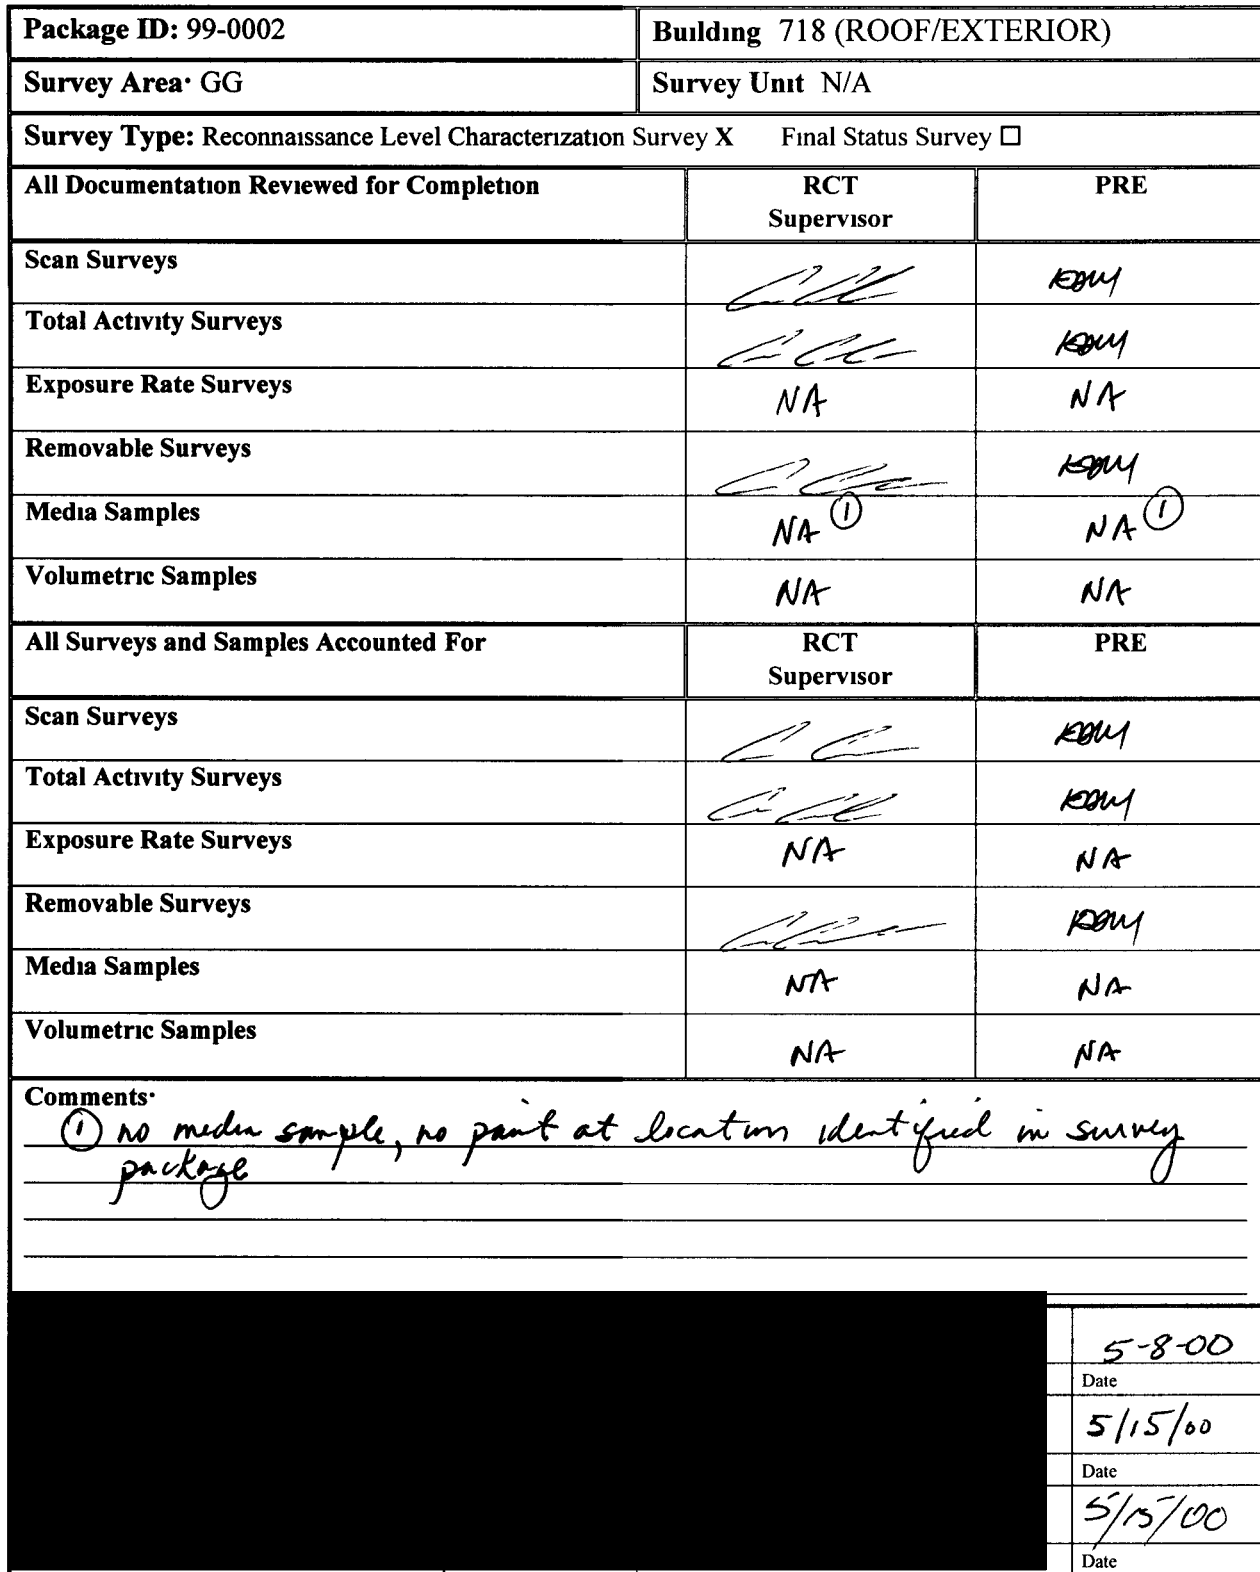 Package ID: 99-0002 Building 718 (ROOF/EXTERIOR)
Survey Area· GG Survey Unit N/A
Survey Type: Reconnaissance Level Characterization Survey X Final Status Survey ☐
All Documentation Reviewed for Completion RCT Supervisor PRE
Scan Surveys
Total Activity Surveys
Exposure Rate Surveys NA NA
Removable Surveys
Media Samples NA ① NA ①
Volumetric Samples NA NA
All Surveys and Samples Accounted For RCT Supervisor PRE
Scan Surveys
Total Activity Surveys
Exposure Rate Surveys NA NA
Removable Surveys
Media Samples NA NA
Volumetric Samples NA NA
Comments·
① no media sample, no paint at location identified in survey
package
5-8-00
Date
5/15/00
Date
5/15/00
Date